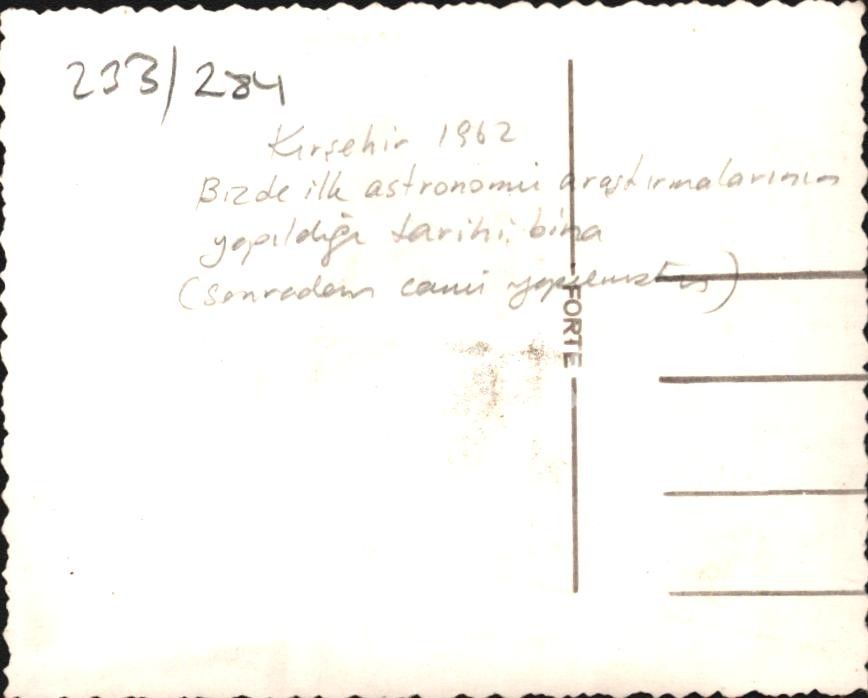 233/284
Kırşehir 1962
Bizde ilk astronomi araştırmalarının
yapıldığı tarihi bina
(Sonradan cami yapılmıştır)
FORTE